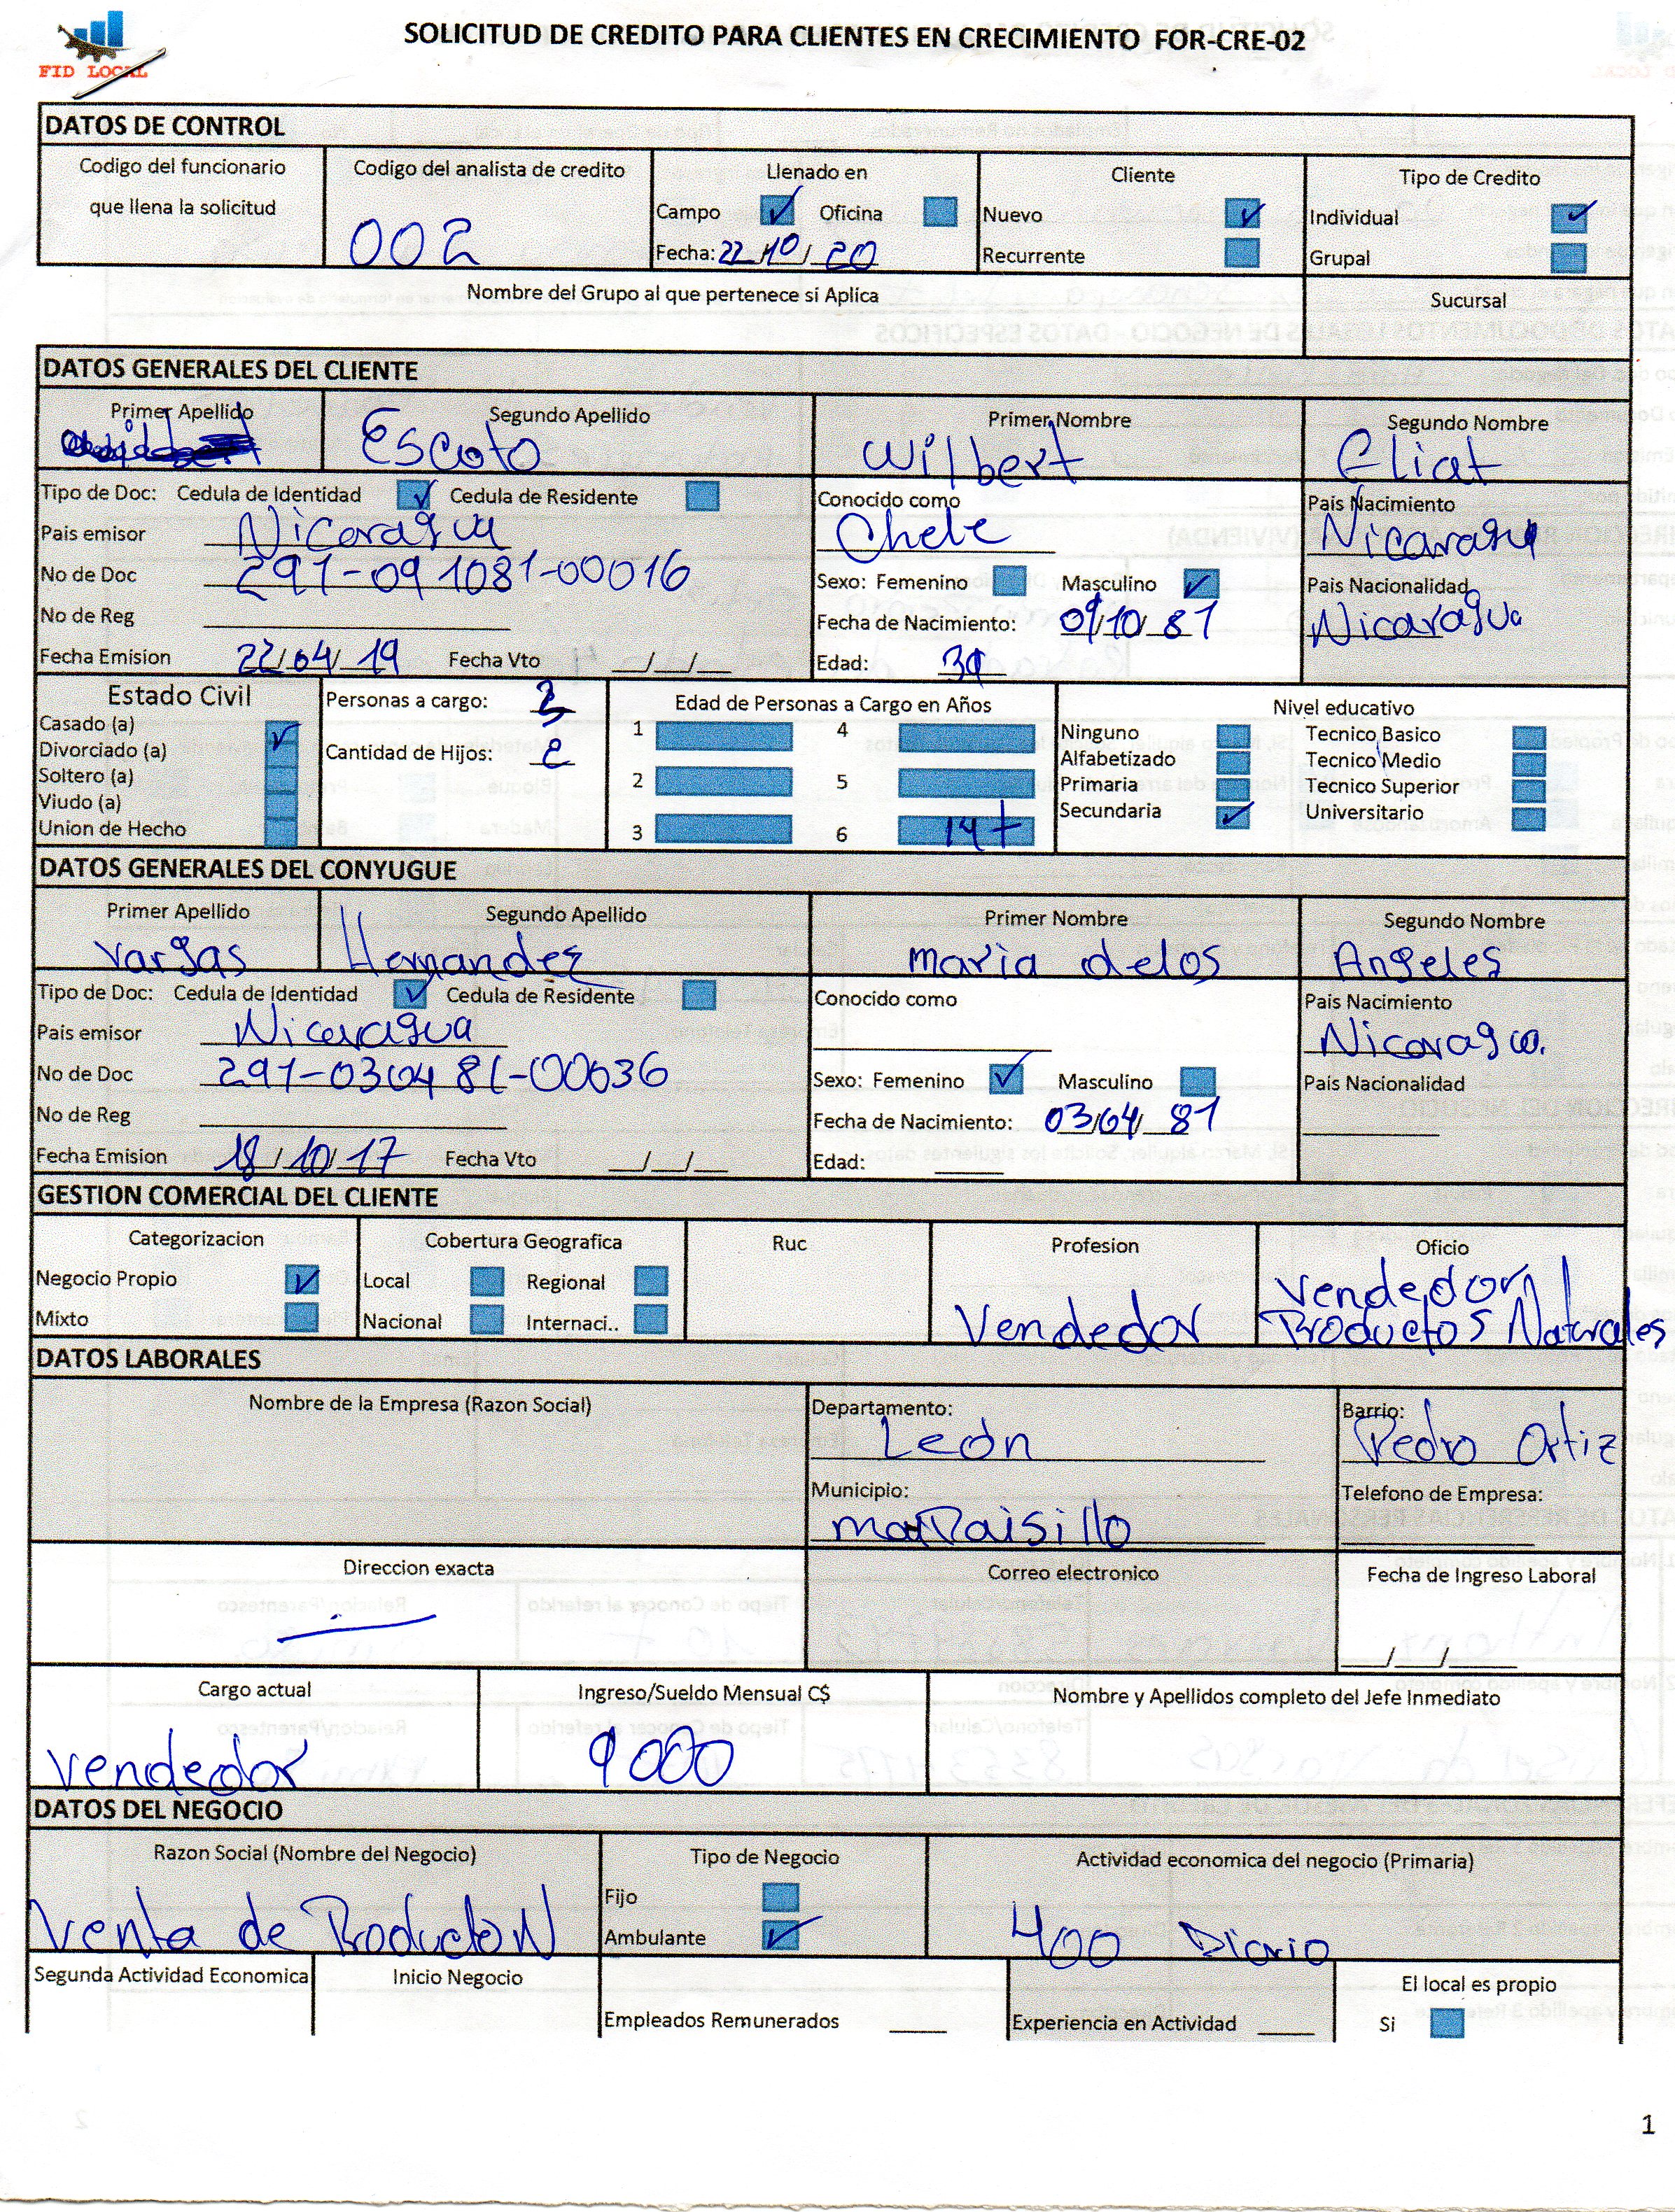 FID LOCAL
SOLICITUD DE CREDITO PARA CLIENTES EN CRECIMIENTO FOR-CRE-02
DATOS DE CONTROL
Codigo del funcionario que llena la solicitud
Codigo del analista de credito
002
Llenado en
Campo ✓ Oficina
Fecha: 22/10/20
Cliente
Nuevo ✓
Recurrente
Tipo de Credito
Individual ✓
Grupal
Nombre del Grupo al que pertenece si Aplica
Sucursal
DATOS GENERALES DEL CLIENTE
Primer Apellido
Segundo Apellido
Escoto
Primer Nombre
Wilbert
Segundo Nombre
Eliat
Tipo de Doc: Cedula de Identidad ✓ Cedula de Residente
Pais emisor Nicaragua
No de Doc 291-091081-00016
No de Reg
Fecha Emision 22/04/19 Fecha Vto __/__/__
Conocido como
Chele
Sexo: Femenino Masculino ✓
Fecha de Nacimiento: 09/10/81
Edad: 39
Pais Nacimiento
Nicaragua
Pais Nacionalidad
Nicaragua
Estado Civil
Casado (a) ✓
Divorciado (a)
Soltero (a)
Viudo (a)
Union de Hecho
Personas a cargo: 3
Cantidad de Hijos: 2
Edad de Personas a Cargo en Años
1 4
2 5
3 6 14+
Nivel educativo
Ninguno Tecnico Basico
Alfabetizado Tecnico Medio
Primaria Tecnico Superior
Secundaria ✓ Universitario
DATOS GENERALES DEL CONYUGUE
Primer Apellido
Vargas
Segundo Apellido
Hernandez
Primer Nombre
maria delos
Segundo Nombre
Angeles
Tipo de Doc: Cedula de Identidad ✓ Cedula de Residente
Pais emisor Nicaragua
No de Doc 291-030481-00036
No de Reg
Fecha Emision 18/10/17 Fecha Vto __/__/__
Conocido como
Sexo: Femenino ✓ Masculino
Fecha de Nacimiento: 03/04/81
Edad:
Pais Nacimiento
Nicaragua.
Pais Nacionalidad
GESTION COMERCIAL DEL CLIENTE
Categorizacion
Negocio Propio ✓
Mixto
Cobertura Geografica
Local Regional
Nacional Internaci..
Ruc
Profesion
Vendedor
Oficio
Vendedor
Productos Naturales
DATOS LABORALES
Nombre de la Empresa (Razon Social)
Departamento:
León
Municipio:
malPaisillo
Barrio:
Pedro Ortiz
Telefono de Empresa:
Direccion exacta
Correo electronico
Fecha de Ingreso Laboral
__/__/__
Cargo actual
Vendedor
Ingreso/Sueldo Mensual C$
9000
Nombre y Apellidos completo del Jefe Inmediato
DATOS DEL NEGOCIO
Razon Social (Nombre del Negocio)
Venta de Producto N
Tipo de Negocio
Fijo
Ambulante ✓
Actividad economica del negocio (Primaria)
400 Diario
Segunda Actividad Economica
Inicio Negocio
Empleados Remunerados
Experiencia en Actividad
El local es propio
Si
1